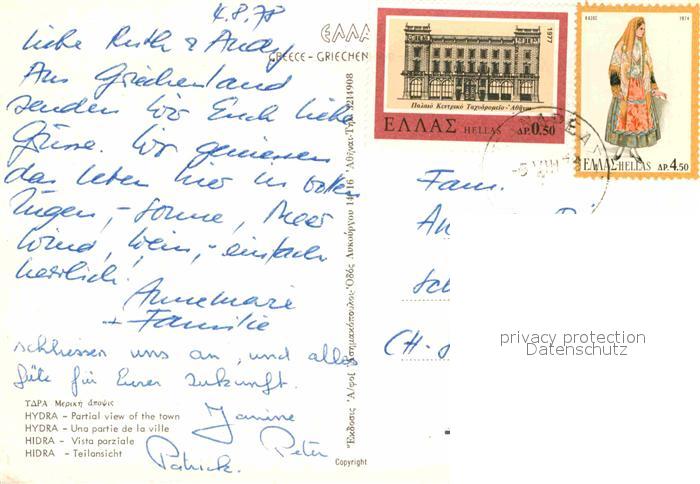 4.8.78
Liebe Ruth & Andy
Aus Griechenland
senden wir Euch liebe
Grüsse. Wir geniessen
das Leben hier in vollen
Zügen, - Sonne, Meer
Wind, Wein, - einfach
herrlich!
Annemarie
+ Familie
schliessen uns an, und alles
Gute für Eurer Zukunft.
Janine
Peter
Patrick.
ΥΔΡΑ Μερική άποψις
HYDRA – Partial view of the town
HYDRA – Una partie de la ville
HIDRA – Vista porziale
HIDRA – Teilansicht
Copyright
GREECE - GRIECHEN
1977
Παλαιό Κεντρικό Ταχυδρομείο - Ἀθήνα
ΕΛΛΑΣ HELLAS ΔΡ. 0.50
1974
ΕΛΛΑΣ HELLAS ΔΡ. 4.50
Fam.
CH-
privacy protection
Datenschutz